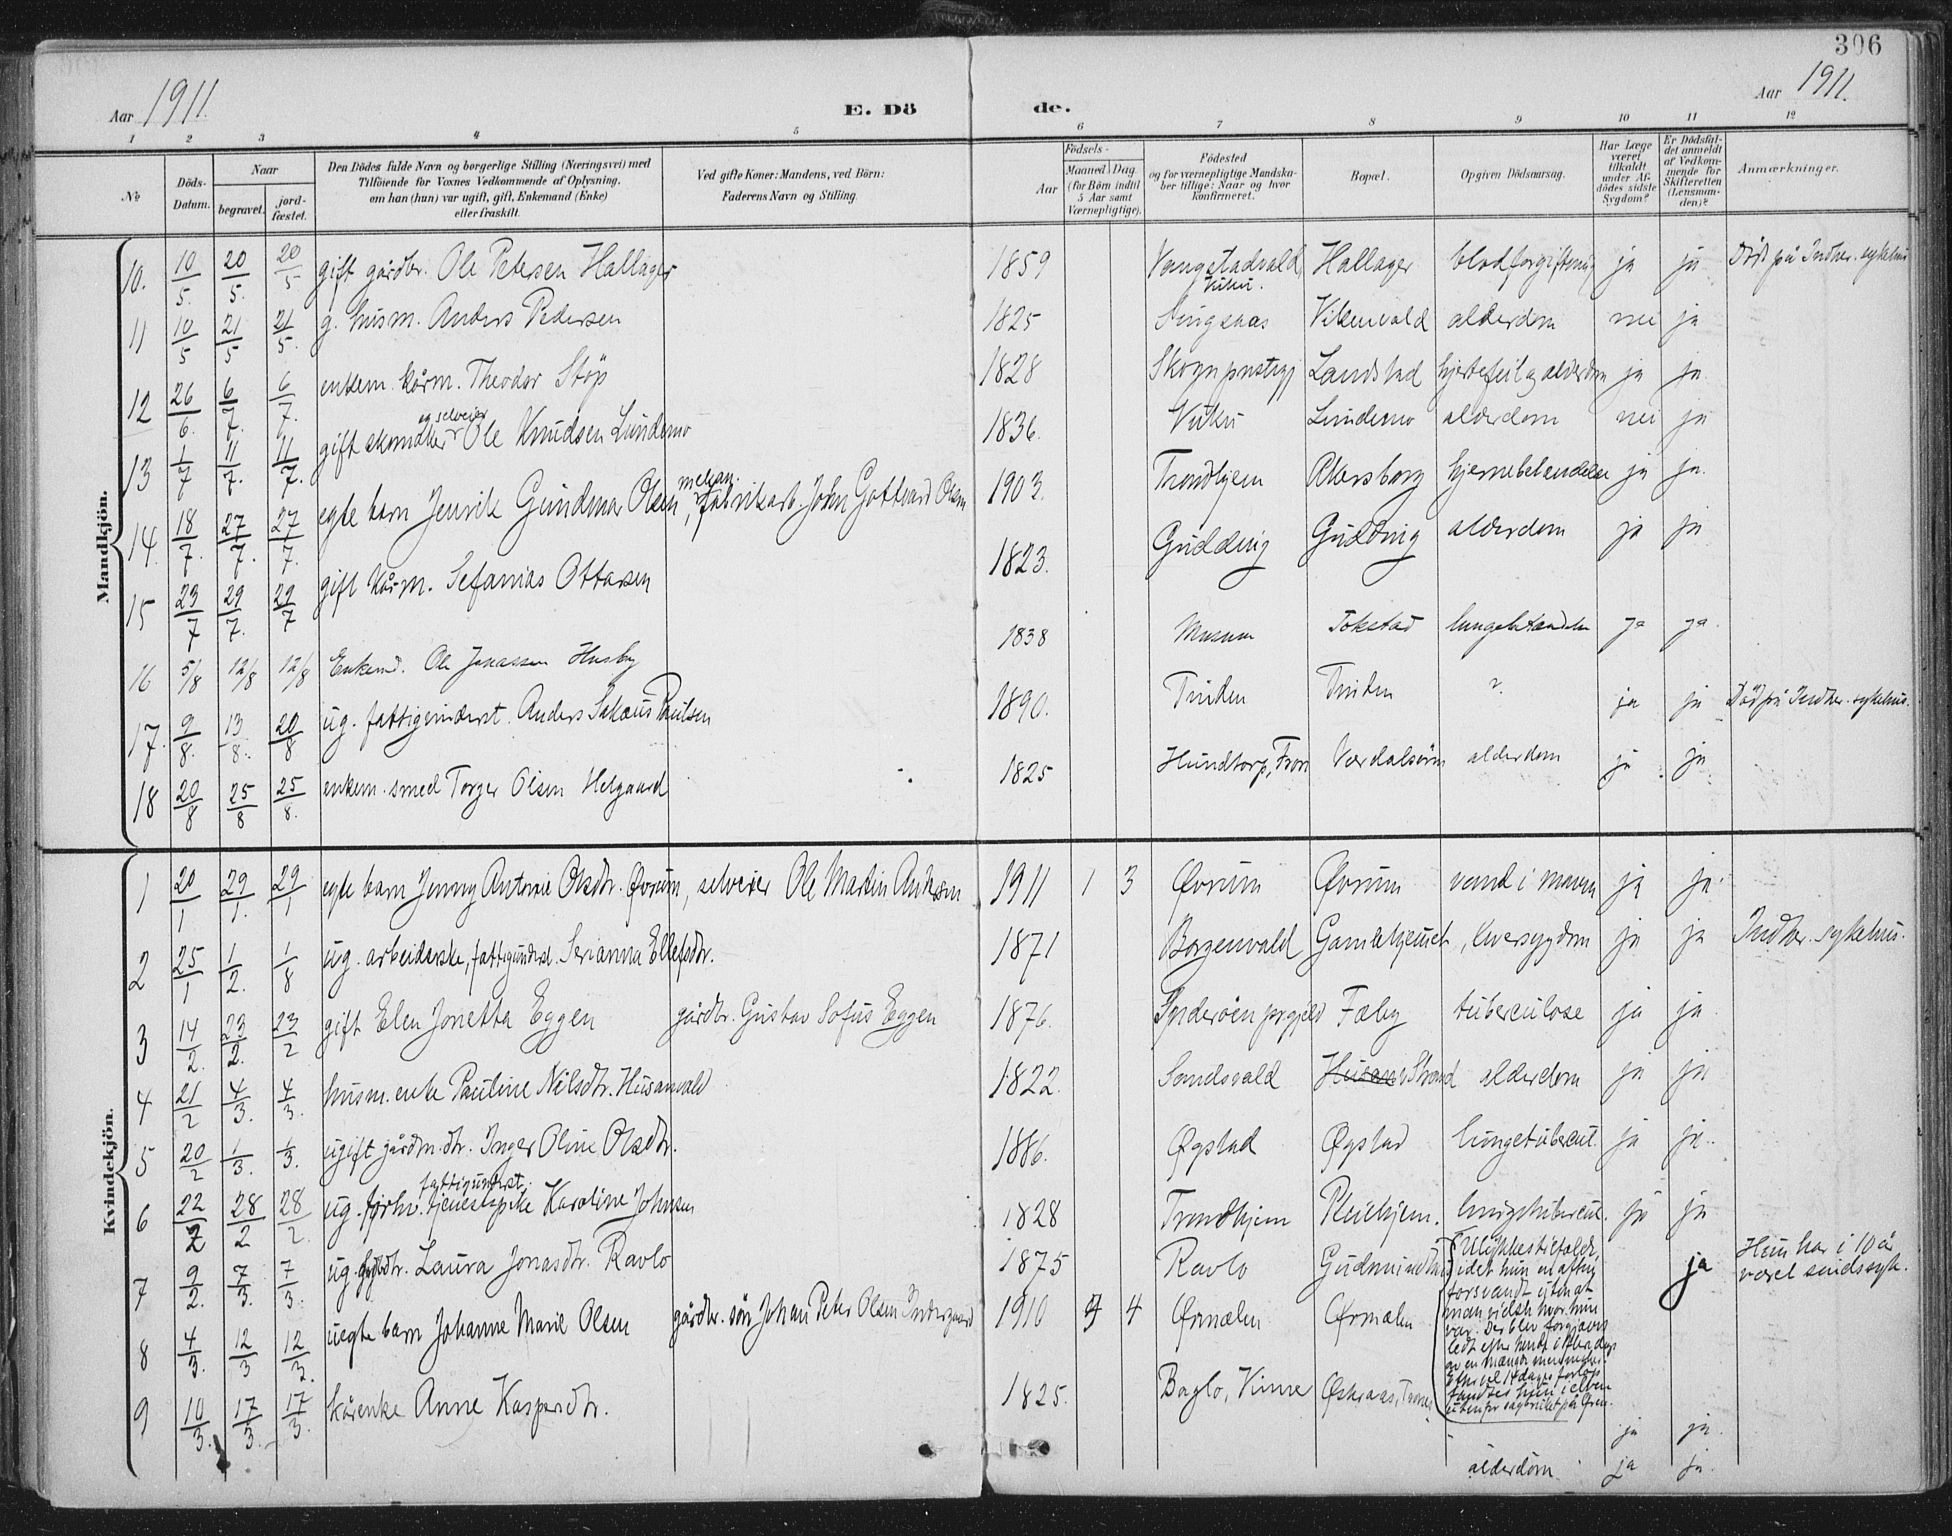 306
Aar 1911.
E. Döde.
Aar 1911.
1 2 3 4 5 6 7 8 9 10 11 12
№
Döds-Datum.
Naar
begravet.
jord-fæstet.
Den Dödes fulde Navn og borgerlige Stilling (Næringsvei) med
Tilföiende for Voxnes Vedkommende af Oplysning,
om han (hun) var ugift, gift, Enkemand (Enke)
eller fraskilt.
Ved gifte Koner: Mandens, ved Börn:
Faderens Navn og Stilling.
Födsels-
Aar
Maaned Dag
(for Börn indtil
5 Aar samt
Værnepligtige).
Födested
og for værnepligtige Mandska-
ber tillige: Naar og hvor
konfirmeret.
Bopæl.
Opgiven Dödsaarsag.
Har Læge
været
tilkaldt
under Af-
dödes sidste
Sygdom?
Er Dödsfal-
det anmeldt
af Vedkom-
mende for
Skifteretten
(Lensman-
den)?
Anmærkninger.
Mandkjön.
10. 10/5. 20/5. 20/5 gift gårdbr. Ole Petersen Hallager 1859 Vangstadvald, Vuku. Hallager blodforgiftning ja ja Död på Indher. sykehus
11 10/5 21/5 21/5. g. husm. Anders Pedersen 1825 Singsaas Vikenvald alderdom nei ja
12 26/6. 6/7. 6/7. enkem. kårm. Theodor Stöp 1828 Skogn prestegj Landstad hjertefeil og alderdom ja ja
13 1/7 11/7. 11/7. gift skomaker og selveier Ole Knudsen Lundemo 1836. Vuku Lundemo alderdom nei ja
14. 18/7. 27/7. 27/7. egte barn Jenrik Gundmar Olsen, mekan. fabrikarb. John Gottvard Olsen 1903. Trondhjem Akersborg hjernebetendelse ja ja.
15 23/7 29/7. 29/7 gift kårm. Sefanias Ottersen 1823. Gudding Gudding alderdom ja ja
16 5/8 12/8 12/8 Enkemd. Ole Jonassen Husby 1838 Musum Tokstad lungebetændelse ja ja
17. 9/8. 13/8. 20/8 ug. fattigunderst. Anders Sakæus Paulsen 1890. Trinden Trinden ? ja ja Död på Indher. sykehus.
18 20/8 25/8 25/8. enkem. smed Torger Olsen Helgaard 1825 Hundtorp, Fron Værdalsören alderdom ja ja
Kvindekjön.
1 20/1 29/1. 29/1 egte barn Jenny Antonie Olsdtr. Øvrum, selveier Ole Martin Andersen 1911 1 3 Øvrum Øvrum vand i maven ja ja
2 25/1 1/2. 1/8 ug. arbeiderske, fattigunderst. Serianna Ellefsdtr. 1871 Borgenvald Gamlehjemet, liversygdom ja ja Indher. sykehus.
3 14/2. 23/2. 23/2 gift Elen Jonetta Eggen gårdbr. Gustav Sofus Eggen 1876. Ynderöen prgjeld Fæby tuberculose ja ja
4 21/2 4/3. 4/3. husm. enke Pauline Nilsdtr. Husanvald 1822. Sundsvald Husanv Strand alderdom ja ja
5 20/2 1/3. 1/3. ugift gårdm.dtr. Inger Oline Olsdtr. 1886. Øgstad Øgstad lungetubercul. ja ja
6 22/2 28/2 28/2. ug. forhv. tjenestepike fattigunderst. Karoline Johnsen 1828 Trondhjem Pleiehjem. lungetubercul. ja ja
7 9/2. 7/3. 7/3. ug. Laura Jonasdtr. Ravlo 1875 Ravlo Ulykkestilfælde, idet hun en aften forsvandt uten at man vidste hvor hun var. Der blev forgjæves ledt efter hende i flere dage av en mængde mennesker. Efter vel 14 dages forløp fandtes hun i elven utenfor sagbruket på Øren. ja Hun har i 10 år været sindssyk.
8 4/3. 12/3 12/3. uegte barn Johanne Marie Olsen gårdbr. sön Johan Peter Olsen Indergaard 1910 9 4 Ørmælen Ørmælen ja ja
9 10/3. 17/3. 17/3. kårenke Anne Kaspersdtr. 1825. Baglo, Vinne alderdom ja ja